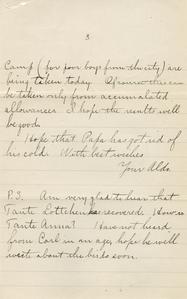 3
Camp (for poor boys from the city) are
being taken today. Of course this can
be taken only from accumulated
allowances. I hope the results will
be good.
Hope that Papa has got rid of
his cold. With best wishes
Your Aldo.
P.S. Am very glad to hear that
Tante Lottchen has recovered. How is
Tante Anna? Have not heard
from Carl in an age, hope he will
write about the birds soon.